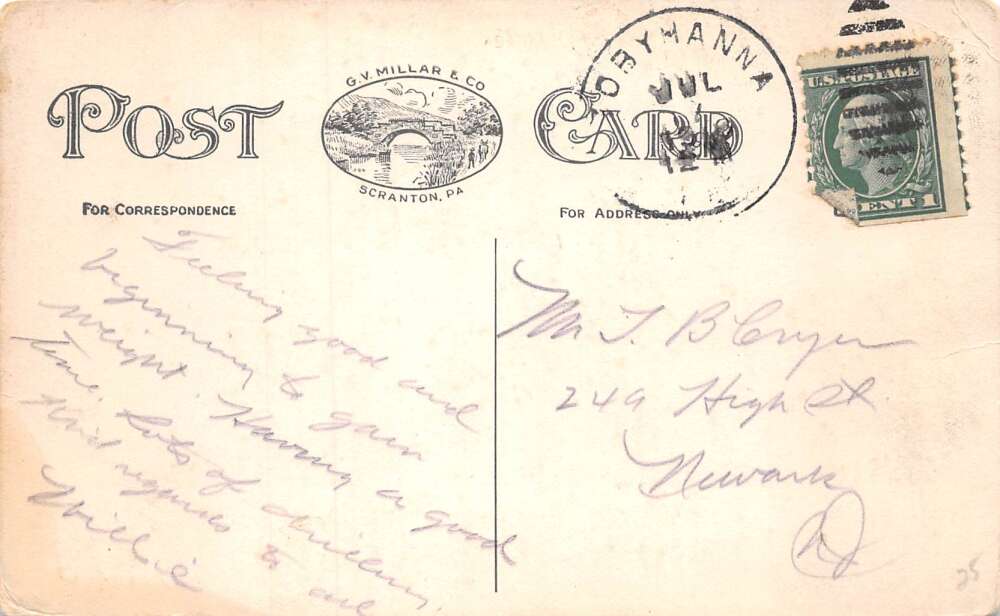 POST CARD
G.V. MILLAR & CO
SCRANTON, PA
TOBYHANNA
JUL
U.S. POSTAGE
CENT 1
FOR CORRESPONDENCE
FOR ADDRESS ONLY
Feeling good and
beginning to gain
weight. Having a good
time. Lots of
Kind regards to all
Willie
Mr T. B Cryer
249 High St.
Newark
NJ
25